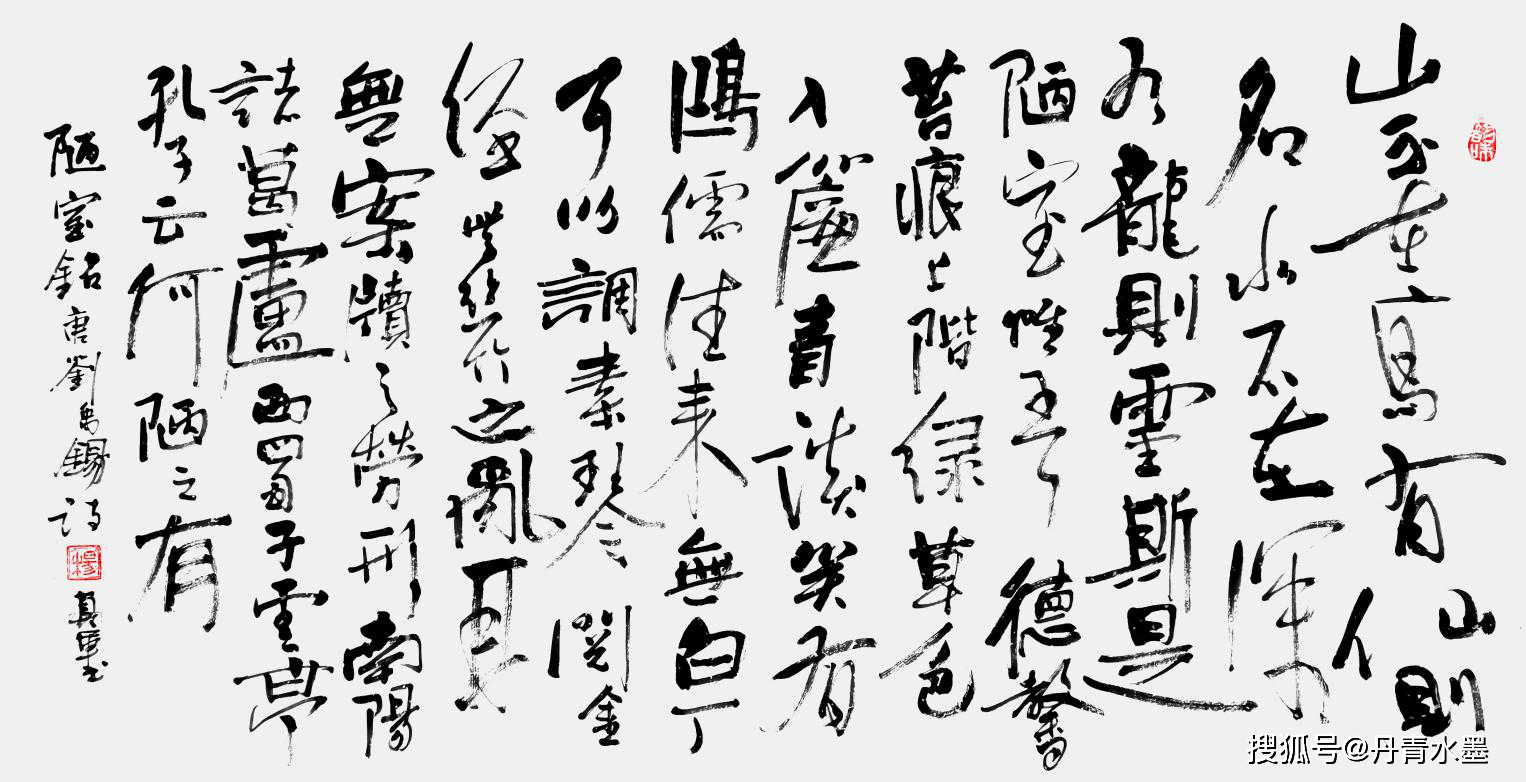 山不在高有仙則
名水不在深
有龍則靈斯是
陋室惟吾德馨
苔痕上階綠草色
入簾青談笑有
鴻儒往來無白丁
可以調素琴閱金
經無絲竹之亂耳
無案牘之勞形南陽
諸葛廬西蜀子雲亭
孔子云何陋之有
陋室銘唐劉禹錫詩
搜狐号@丹青水墨